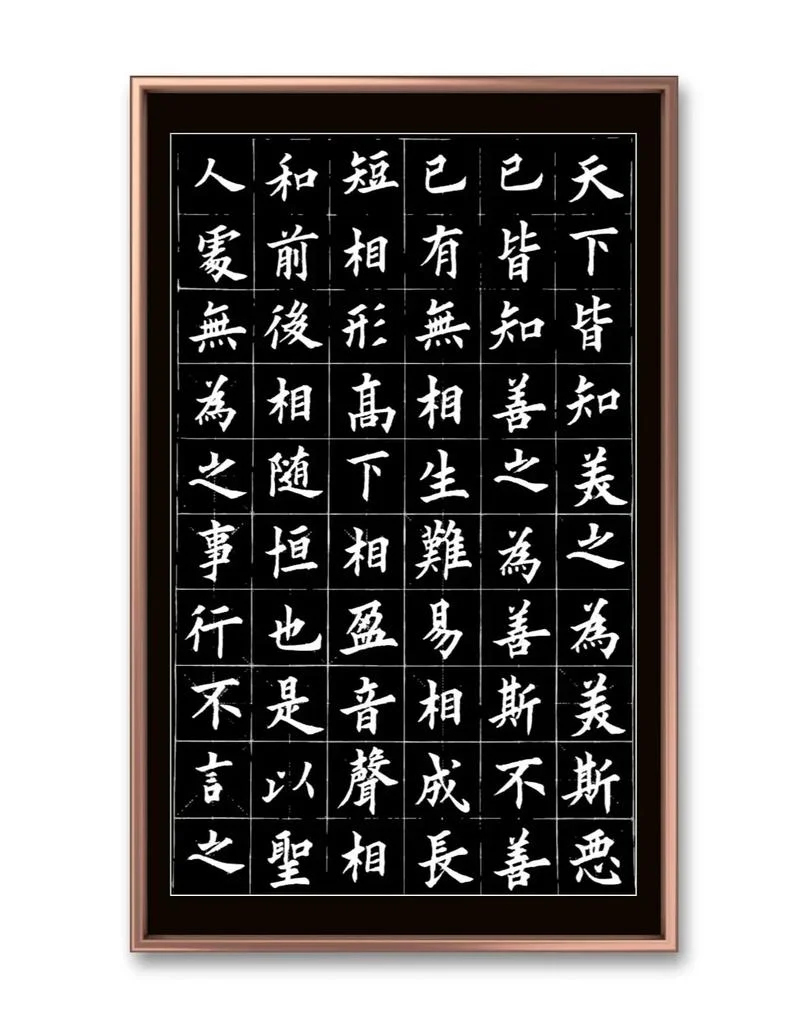 天下皆知美之為美斯悪
已皆知善之為善斯不善
已有無相生難易相成長
短相形髙下相盈音聲相
和前後相随恒也是以聖
人處無為之事行不言之